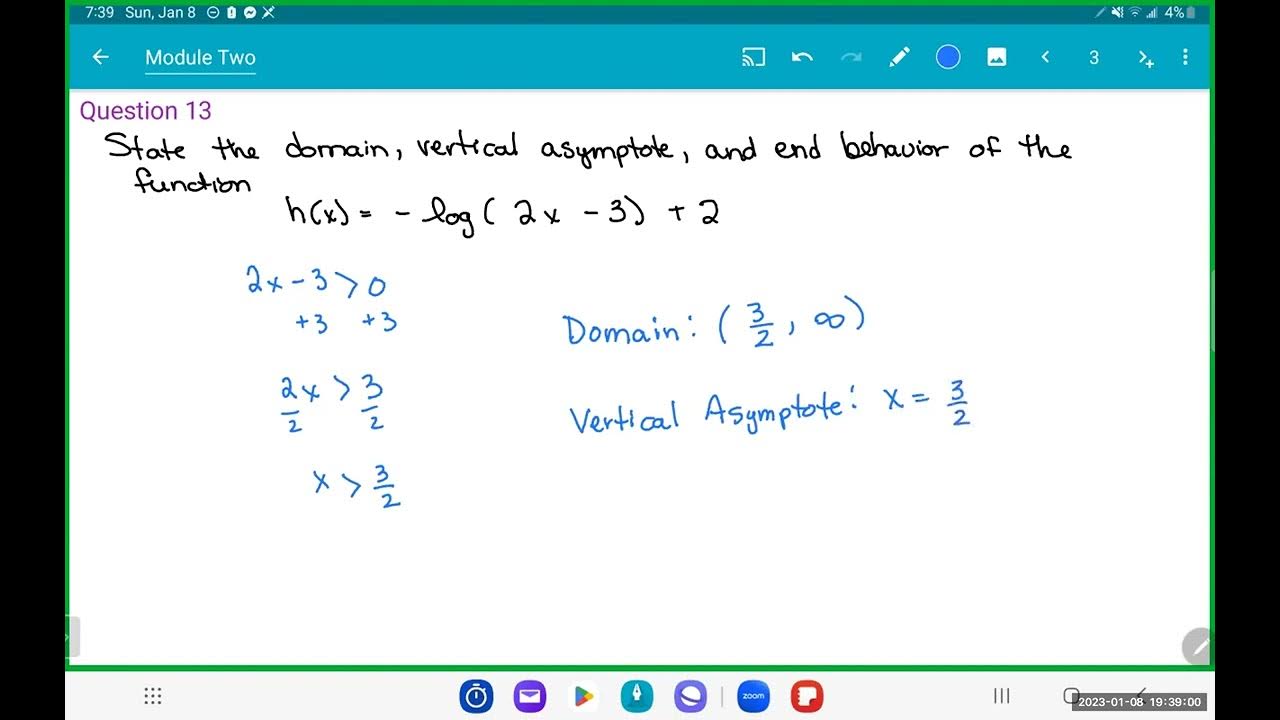 7:39 Sun, Jan 8 4%
Module Two 3
Question 13
State the domain, vertical asymptote, and end behavior of the
function
h(x) = - log( 2x - 3) + 2
2x - 3 > 0
+3 +3
2x > 3
2 2
x > 3/2
Domain: ( 3/2, ∞)
Vertical Asymptote: x = 3/2
zoom
2023-01-08 19:39:00